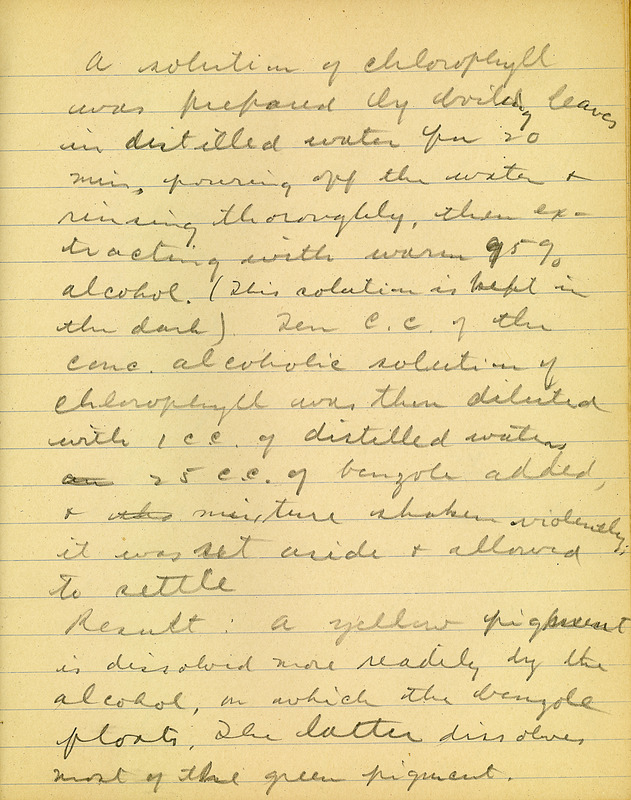 A solution of chlorophyll
was prepared by boiling leaves
in distilled water for 20
min, pouring off the water &
rinsing thoroughly, then ex-
tracting with warm 95%
alcohol. (This solution is kept in
the dark) Ten C.C. of the
conc. alcoholic solution of
chlorophyll was then diluted
with 1 c.c. of distilled water,
an 25 c.c. of benzole added,
& the mixture shaken violently;
it was set aside & allowed
to settle
Result: A yellow pigment
is dissolved more readily by the
alcohol, on which the benzole
floats. The latter dissolves
most of the green pigment.